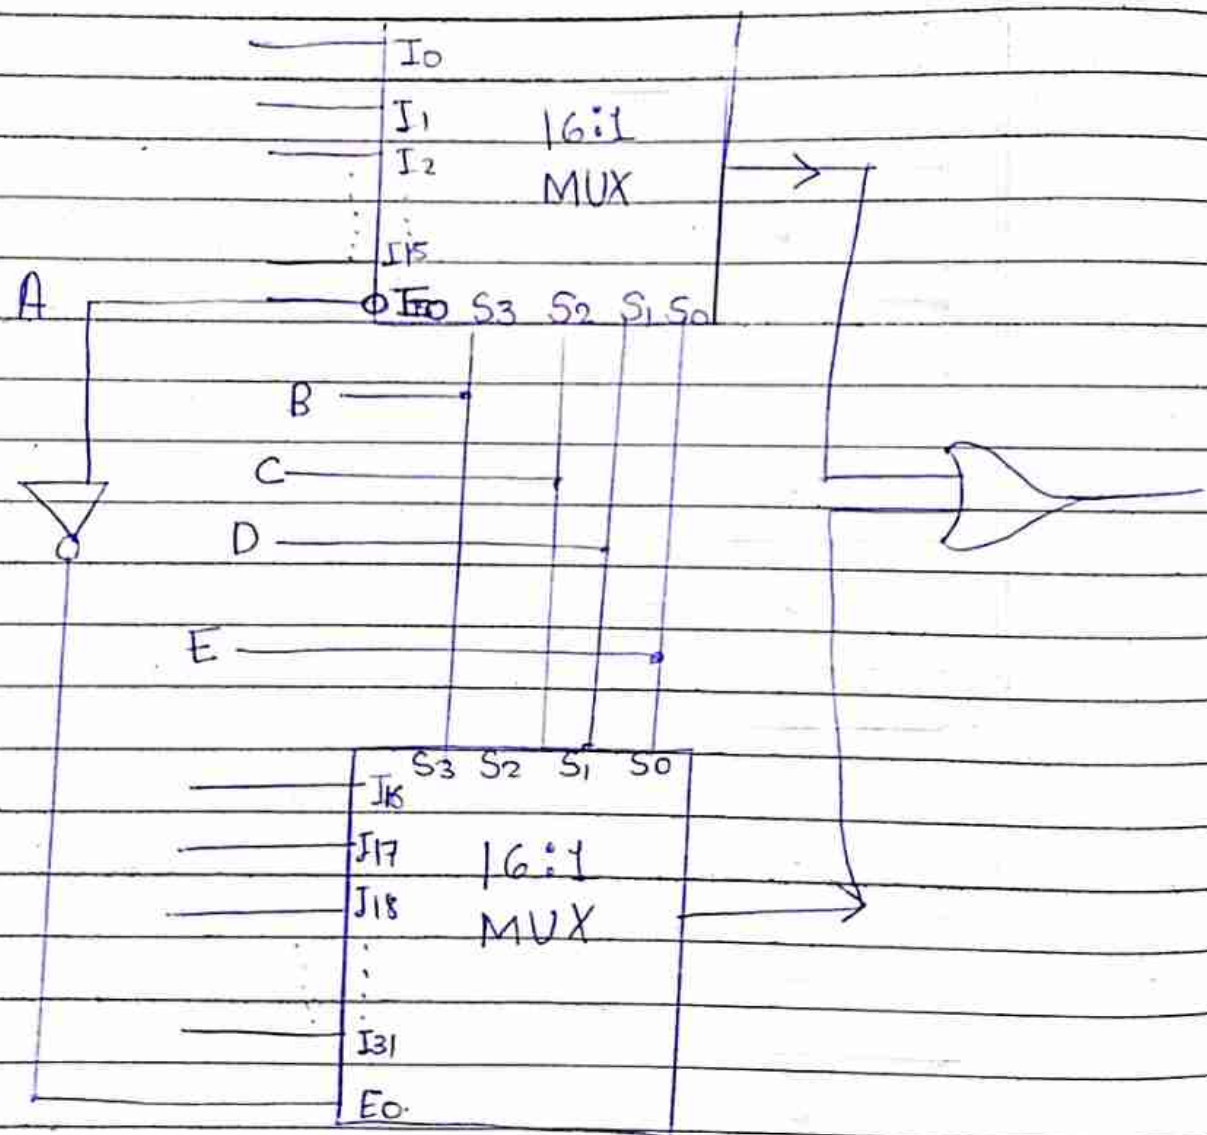 I0
I1
16:1
I2
MUX
I15
A
E0 S3 S2 S1 S0
B
C
D
E
S3 S2 S1 S0
I16
I17
16:1
I18
MUX
I31
E0.